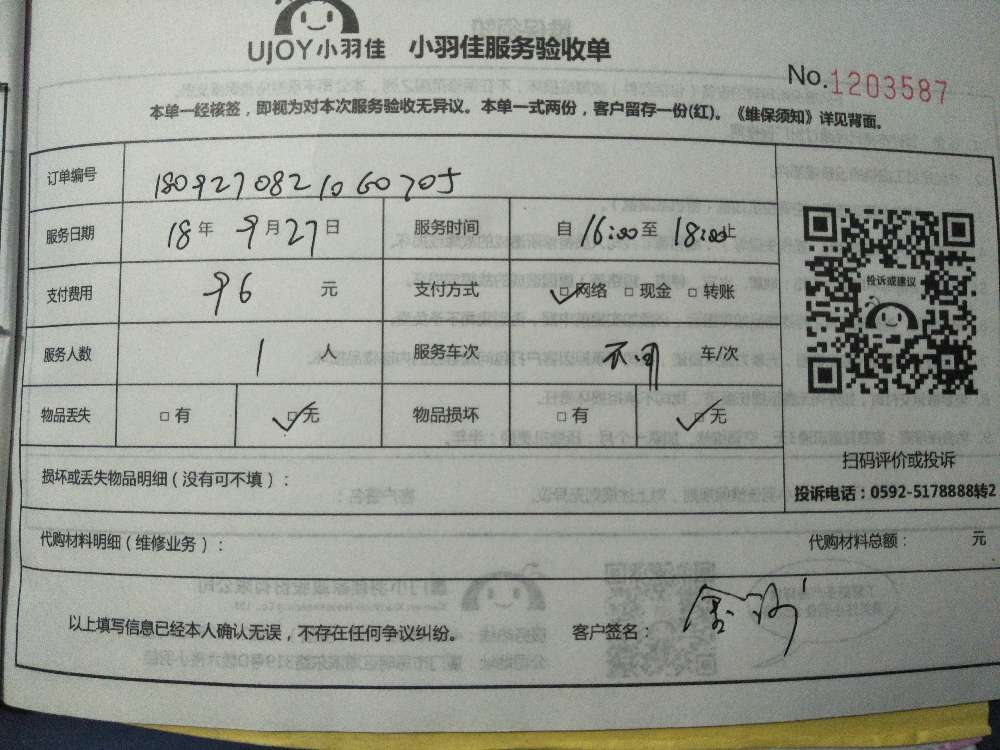 UJOY小羽佳 小羽佳服务验收单
No.1203587
本单一经核签，即视为对本次服务验收无异议。本单一式两份，客户留存一份(红)。《维保须知》详见背面。
订单编号 1809270821060705
服务日期 18年 9月27日 服务时间 自16:00至18:00止
支付费用 96 元 支付方式 □网络 □现金 □转账
投诉或建议
服务人数 1 人 服务车次 车/次
物品丢失 □有 □无 物品损坏 □有 □无
扫码评价或投诉
损坏或丢失物品明细（没有可不填）：
投诉电话：0592-5178888转2
代购材料明细（维修业务）： 代购材料总额： 元
以上填写信息已经本人确认无误，不存在任何争议纠纷。 客户签名：